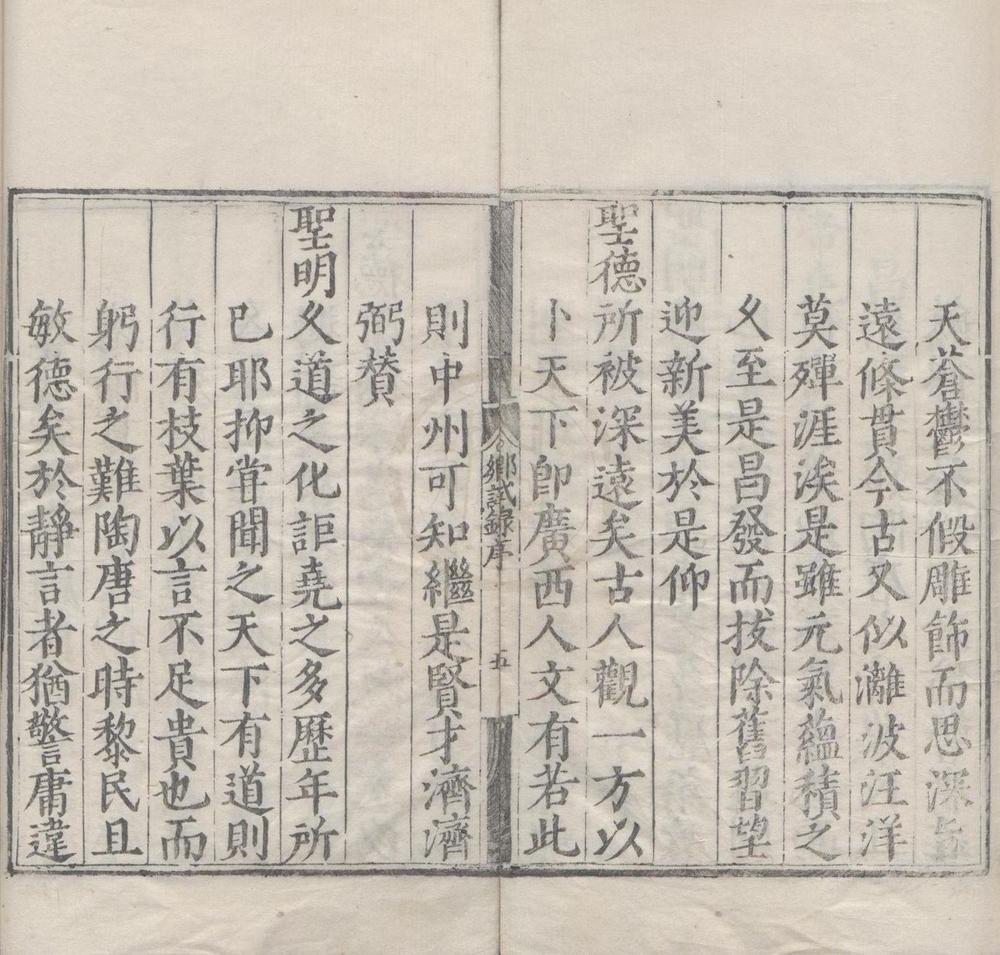 天蒼鬱不假雕飾而思深旨
遠條貫今古又似灕波汪洋
莫殫涯涘是雖元氣蘊積之
久至是昌發而拔除舊習望
迎新美於是仰
聖德所被深遠矣古人觀一方以
卜天下即廣西人文有若此
鄉試錄序
五
則中州可知繼是賢才濟濟
弼贊
聖明久道之化詎堯之多歷年所
已耶抑嘗聞之天下有道則
行有枝葉以言不足貴也而
躬行之難陶唐之時黎民且
敏德矣於靜言者猶警庸違